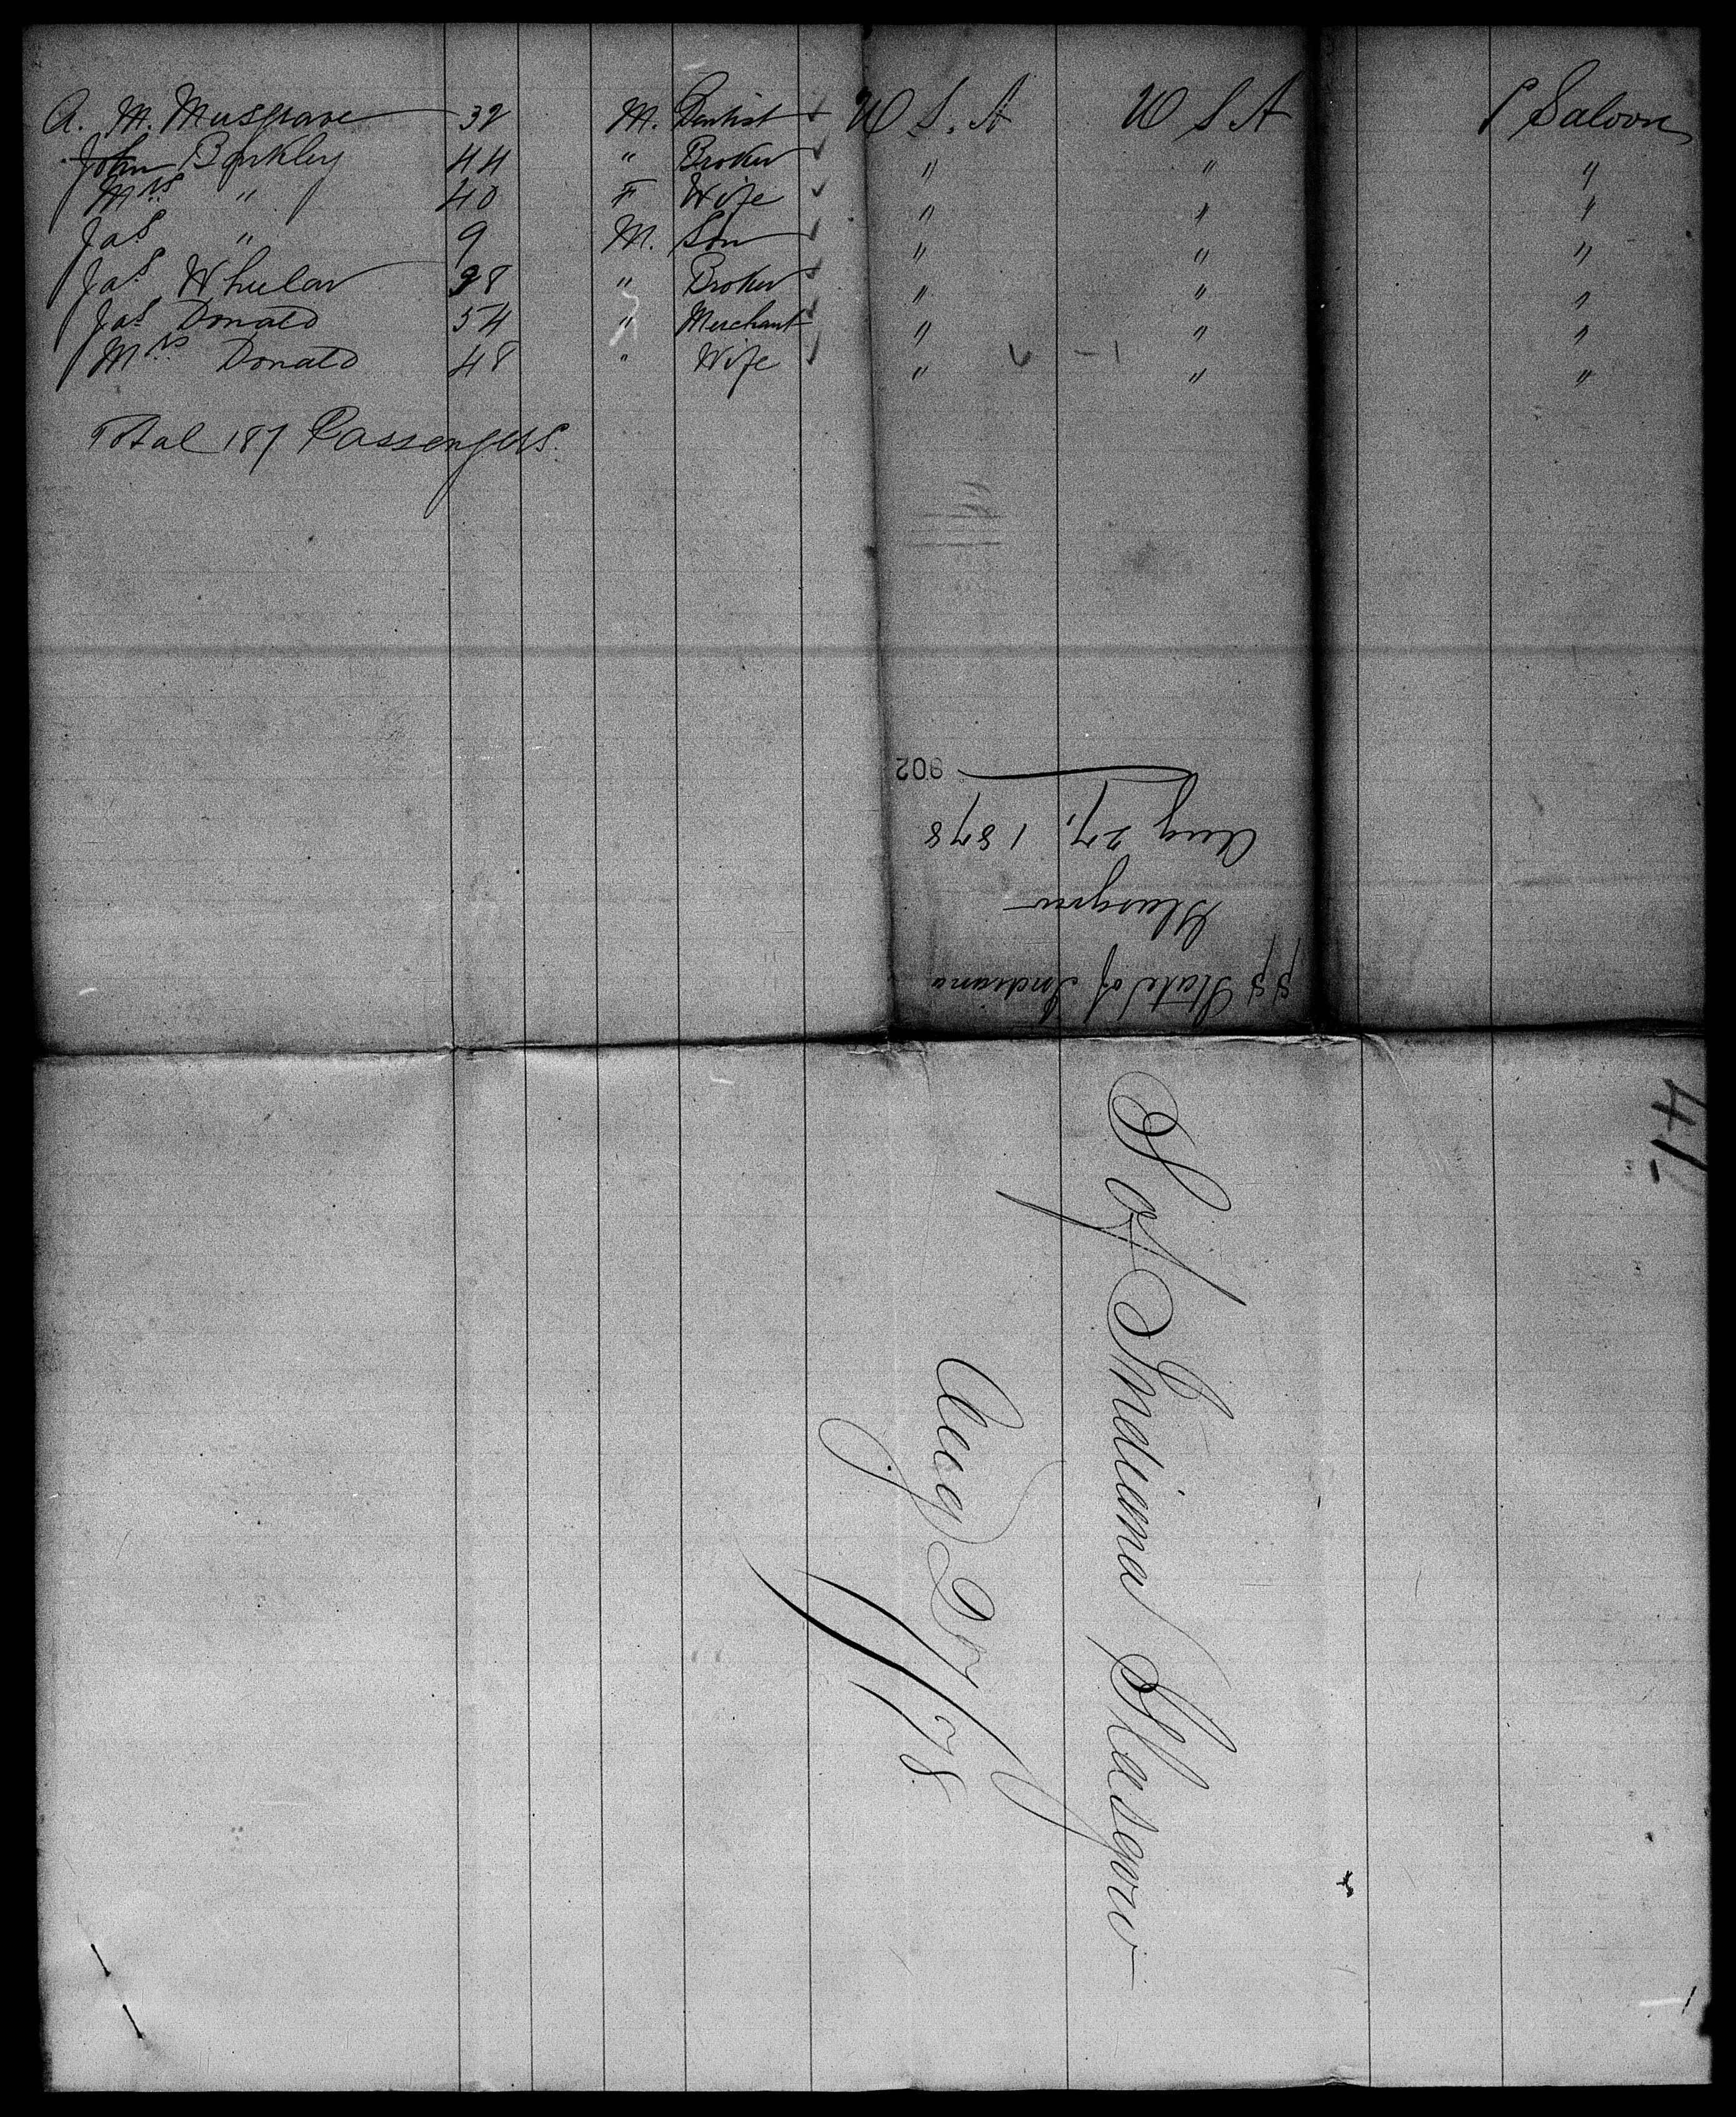 A. M. Musgrave 32 M. Dentist U S. A U S A S Saloon
John Barkley 44 " Broker " " "
Mrs " 40 F Wife " " "
Jas " 9 M. Son " " "
Jas Whelan 28 " Broker " " "
Jas Donald 54 " Merchant " " "
Mrs Donald 48 " Wife " " "
Total 187 Passengers.
SS State of Indiana
Glasgow
Aug 27, 1878
902
41
S of Indiana Glasgow
Aug 27/78